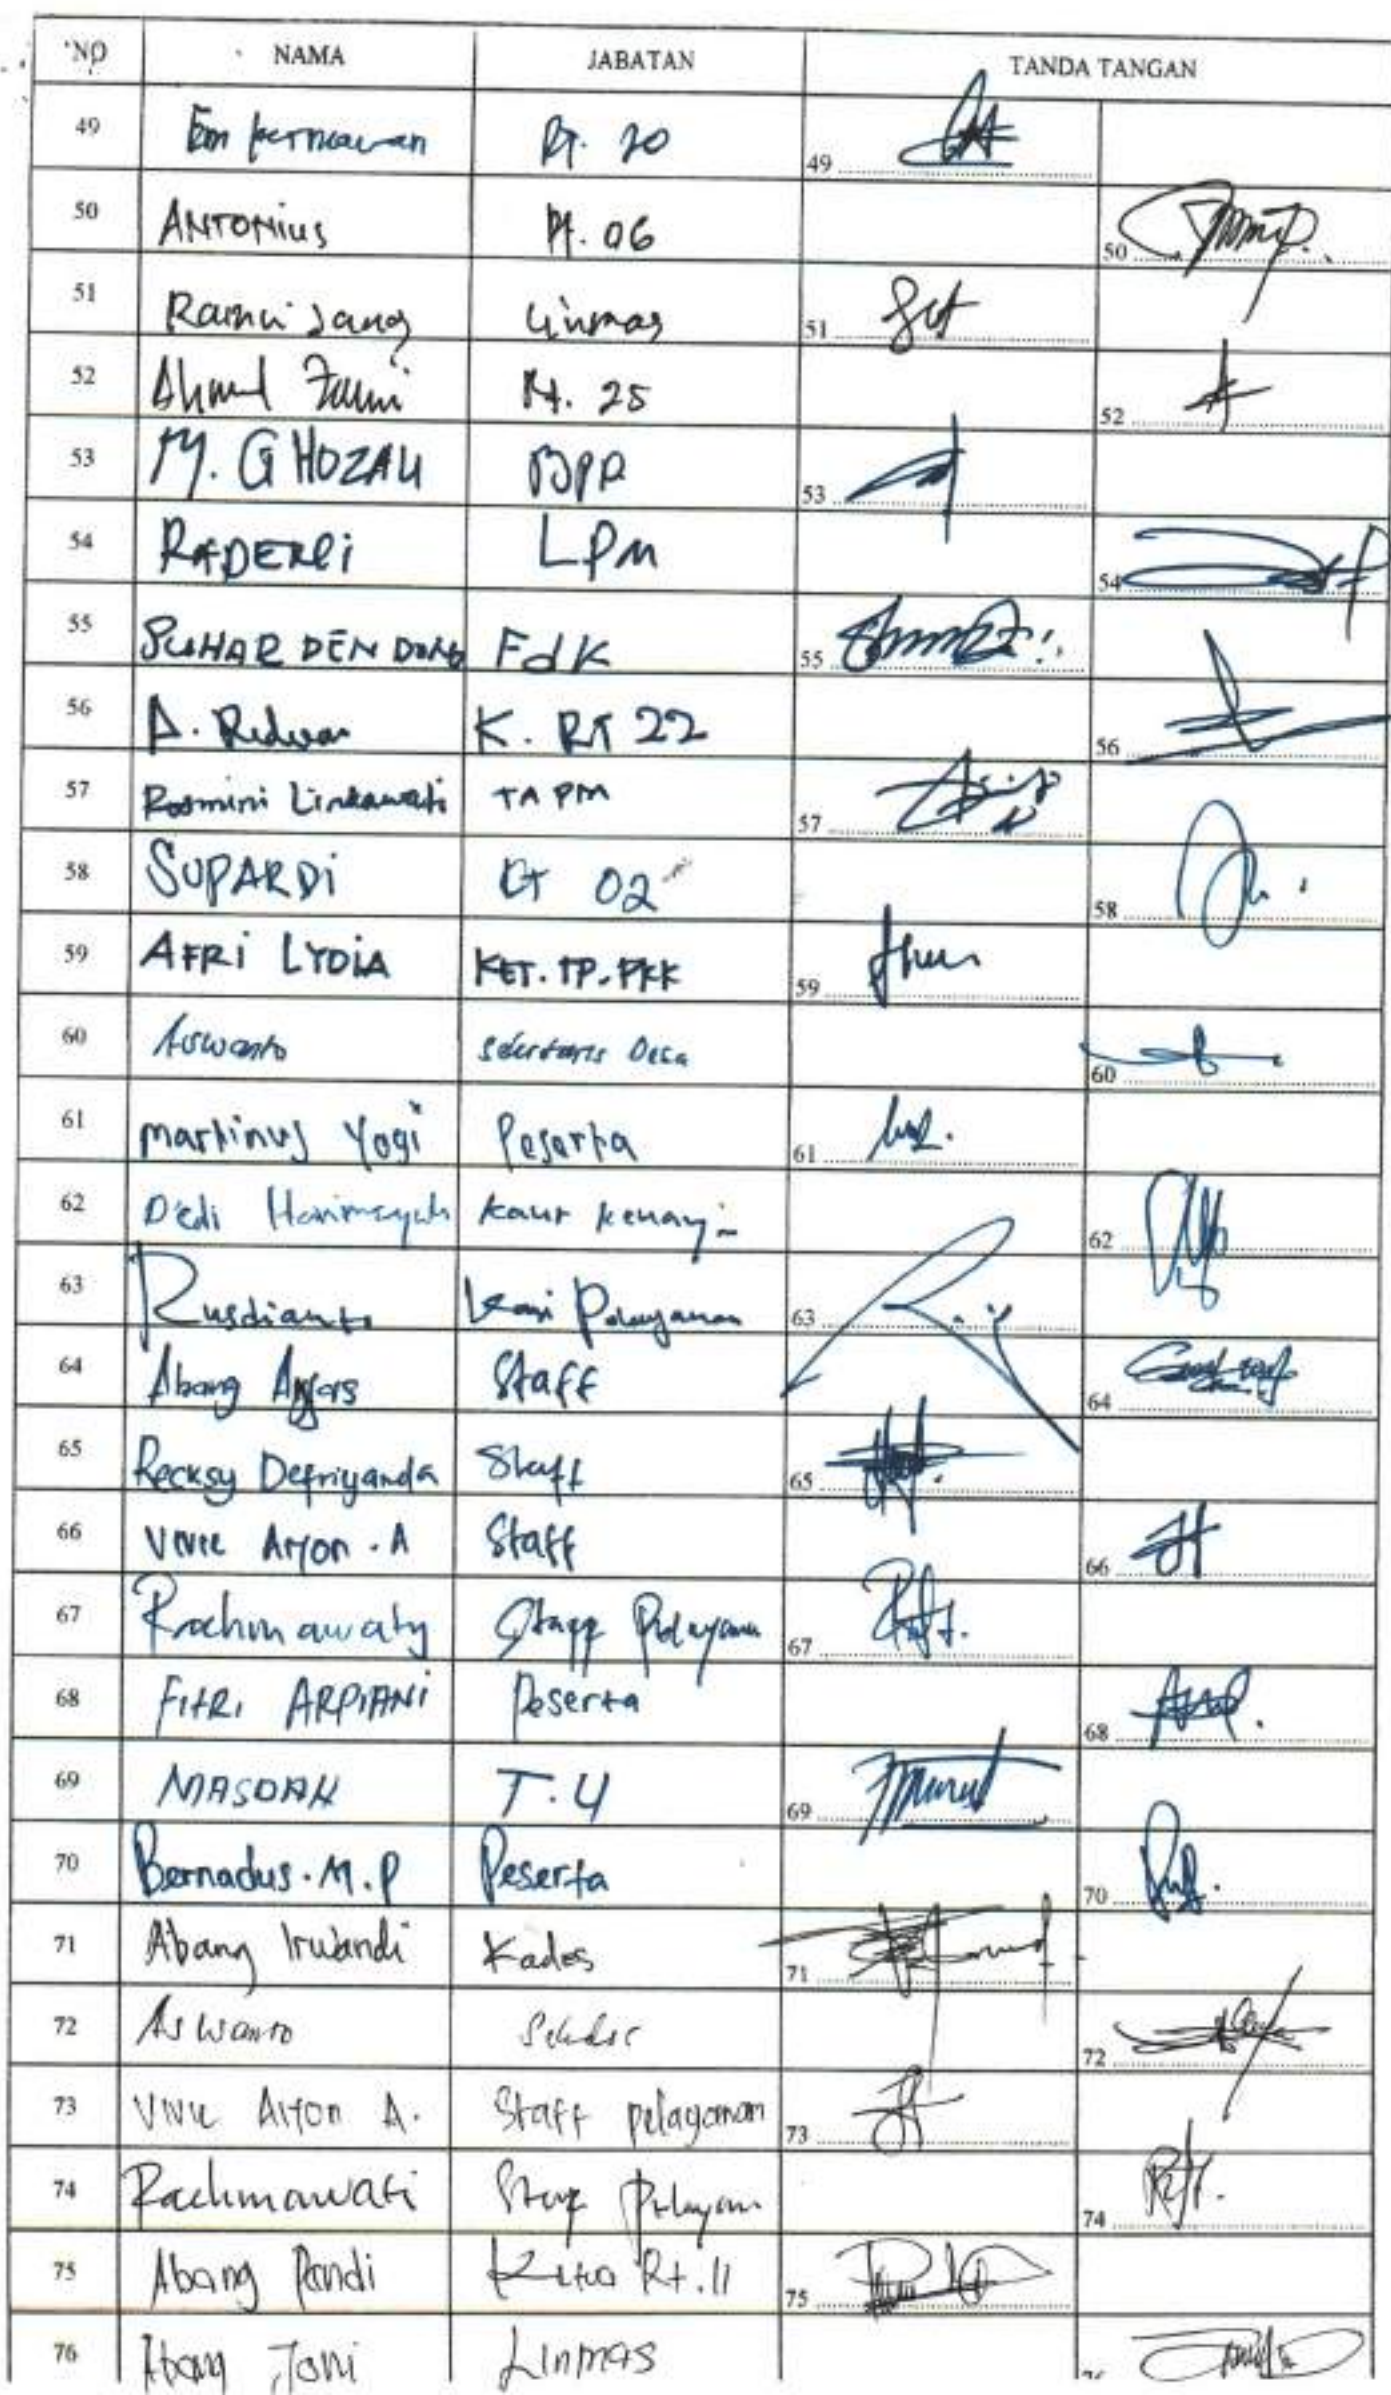 NO NAMA JABATAN TANDA TANGAN
49 Em kerniawan Rt. 20 49
50 ANTONIUS Rt. 06 50
51 Ramli Jang Linmas 51
52 Ahmad Rt. 25 52
53 M. GHOZALI BPD 53
54 RADERPI LPM 54
55 SUHAR DEN DONG FdK 55
56 A. Reduan K. RT 22 56
57 Rosmini Lindawati TA PM 57
58 SUPARDI RT 02 58
59 AFRI LYDIA KET. TP. PKK 59
60 Aswanto Sekretaris Desa 60
61 Martinus Yogi Peserta 61
62 Dedi Harimsyah kaur 62
63 Rusdianto Kasi Pelayanan 63
64 Abang Staff 64
65 Recksy Defriyanda Staff 65
66 Vivie Aryon . A Staff 66
67 Rachmawaty Staff Pelayanan 67
68 FITRI ARPIANI Peserta 68
69 MASDAH T. U 69
70 Bernadus . M . P Peserta 70
71 Abang Irwandi Kades 71
72 Aswanto Sekdes 72
73 Vivie Aryon A. Staff pelayanan 73
74 Rachmawati Staf Pelayan 74
75 Abang Pandi Ketua Rt. 11 75
76 Abang Joni Linmas